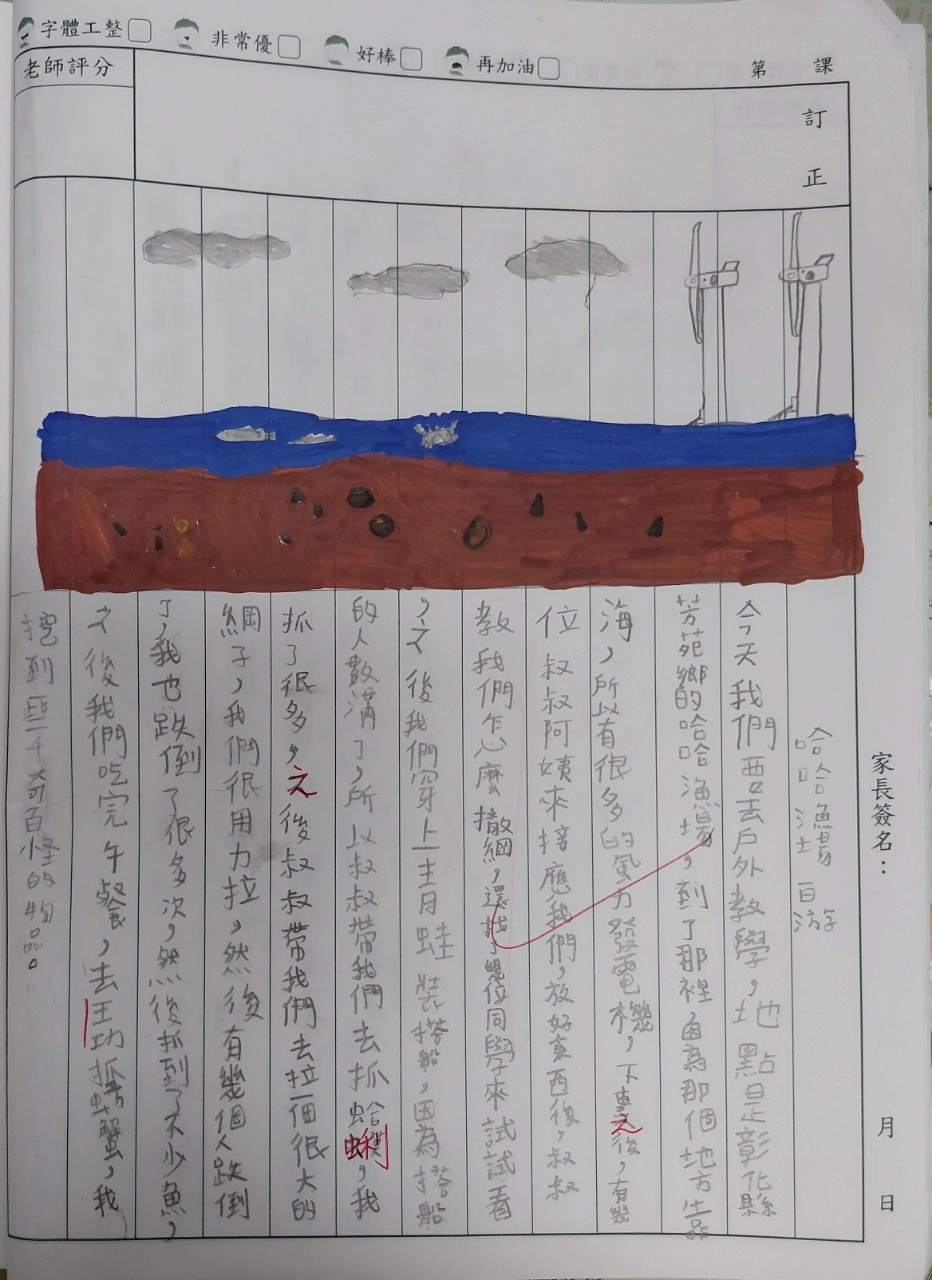 字體工整 非常優 好棒 再加油
老師評分
第 課
訂正
家長簽名：
月 日
哈哈漁場一日游
今天我們要去戶外教學，地點是彰化縣
芳苑鄉的哈哈漁場，到了那裡因為那個地方
海，所以有很多的風力發電機，下車之後，有幾
位叔叔阿姨來接應我們，放好東西後，叔叔
教我們怎麼撒網，還找了幾位同學來試試看
，之後我們穿上青蛙裝搭船，因為搭船
的人數滿了，所以叔叔帶我們去抓蛤蜊，我
抓了很多，之後叔叔帶我們去拉一個很大的
網子，我們很用力拉，然後有幾個人跌倒
了，我也跌倒了很多次，然後抓到了不少魚，
之後我們吃完午餐，去王功抓螃蟹，我
挖到一些千奇百怪的物品。